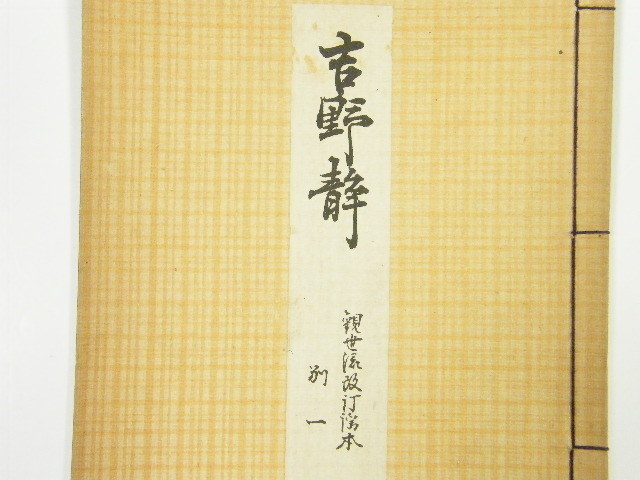 吉野静
観世流改訂謡本
別一